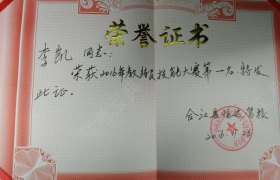 荣誉证书
李凯 同志：
荣获2016年教练员技能大赛第一名特发
此证。
合江县顺达驾校
2016.11.26